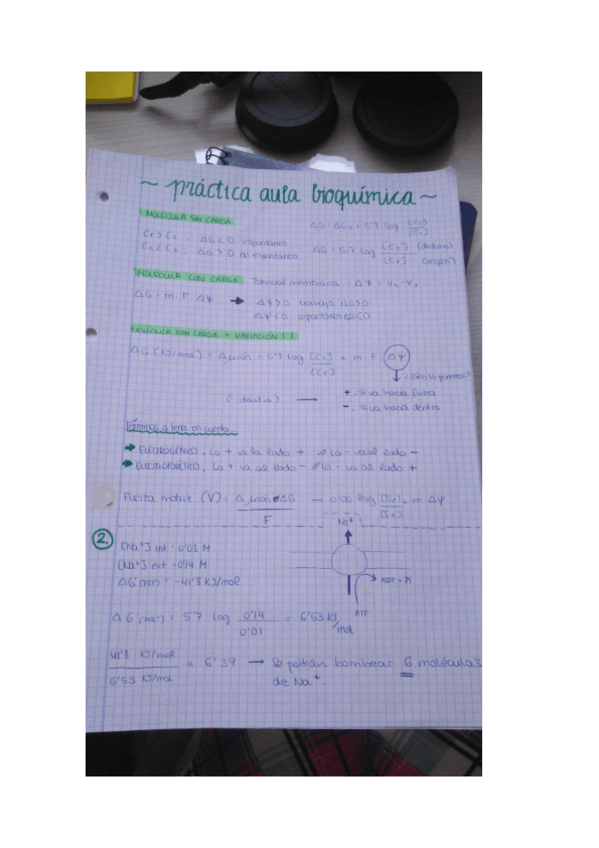 ~ práctica aula bioquímica ~
MOLÉCULA SIN CARGA
ΔG = ΔG₀ + 5'7 log [C2]/[C1]
C1 > C2 . ΔG < 0 espontáneo
C1 < C2 . ΔG > 0 no espontáneo
ΔG = 5'7 log [C2]/[C1]
MOLÉCULA CON CARGA
Potencial membrana = ΔΨ = V2 - V1
ΔG = m · F · ΔΨ → ΔΨ > 0 trabajo ΔG > 0
ΔΨ < 0 espontáneo ΔG < 0
MOLÉCULA CON CARGA + VARIACIÓN [ ]
ΔG (KJ/mol) = Δμión = 5'7 log [C2]/[C1] + m · F ΔΨ
(- dentro) → + . si va hacia fuera
- . si va hacia dentro
Términos a tener en cuenta
→ ELECTROGÉNICO. Lo + va la lado + // Lo - va al lado -
→ ELECTROFORÉTICO. Lo + va al lado - // Lo - va al lado +
Fuerza motriz (V) = ΔG / F
2.
Na⁺
[Na⁺] int = 0'01 M
[Na⁺] ext = 0'14 M
ΔG'(ATP) = -41'8 KJ/mol
ADP + Pi
ATP
ΔG'(Na⁺) = 5'7 log 0'14/0'01 = 6'53 KJ/mol
41'8 KJ/mol / 6'53 KJ/mol = 6'39 → Se podrán bombear 6 moléculas
de Na⁺.